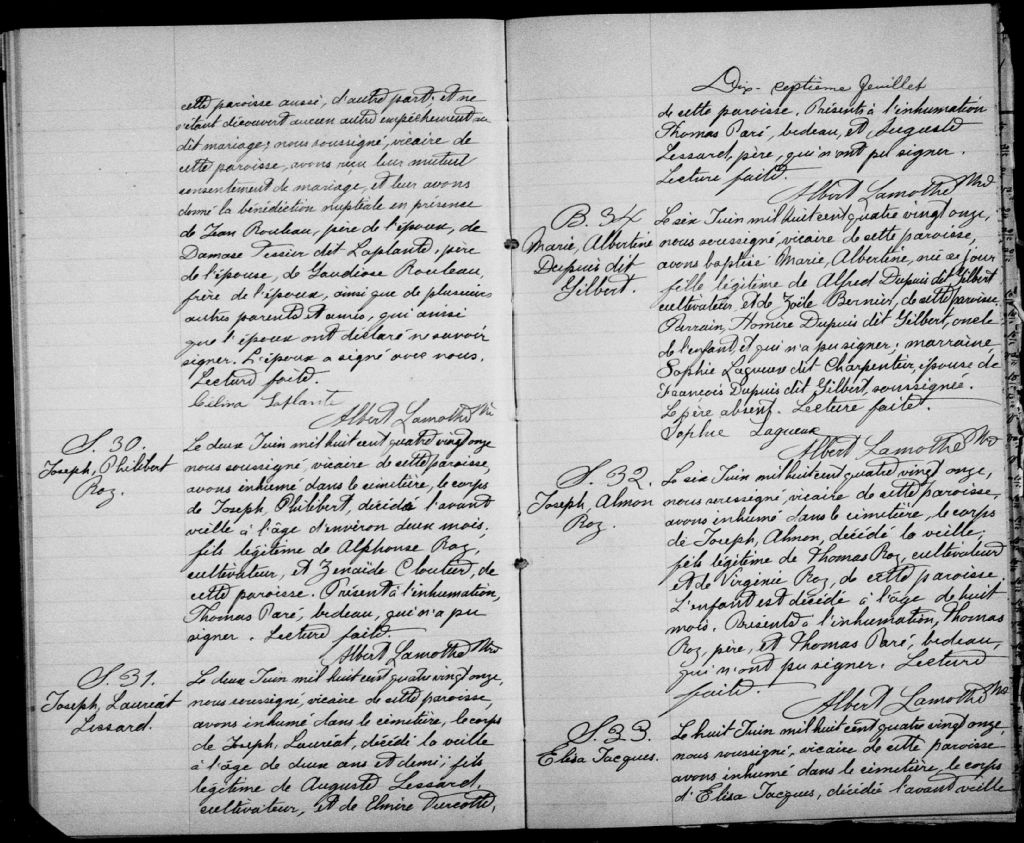 cette paroisse aussi, d'autre part; et ne
s'étant découvert aucun autre empêchement au
dit mariage; nous soussigné, vicaire de
cette paroisse, avons reçu leur mutuel
consentement de mariage, et leur avons
donné la bénédiction nuptiale en présence
de Jean Rouleau, père de l'époux, de
Damase Tessier dit Laplante, père
de l'épouse, de Gaudiose Rouleau,
frère de l'époux, ainsi que de plusieurs
autres parents et amis, qui ainsi
que l'époux ont déclaré ne savoir
signer. L'époux a signé avec nous.
Lecture faite.
Célina Laplante
Albert Lamothe Ptre
S. 30.
Joseph, Philibert
Roy.
Le deux Juin mil huit cent quatre vingt onze
nous soussigné, vicaire de cette paroisse,
avons inhumé dans le cimetière, le corps
de Joseph, Philibert, décédé l'avant
veille à l'âge d'environ deux mois,
fils légitime de Alphonse Roy,
cultivateur, et Zénaïde Cloutier, de
cette paroisse. Présent à l'inhumation,
Thomas Paré, bedeau, qui n'a pu
signer. Lecture faite.
Albert Lamothe Ptre
S. 31.
Joseph, Lauréat
Lessard.
Le deux Juin mil huit cent quatre vingt onze,
nous soussigné, vicaire de cette paroisse,
avons inhumé dans le cimetière, le corps
de Joseph, Lauréat, décédé la veille
à l'âge de deux ans et demi; fils
légitime de Auguste Lessard,
cultivateur, et de Elmire Turcotte,
Dix-septième feuillet
de cette paroisse. Présents à l'inhumation
Thomas Paré, bedeau, et Auguste
Lessard, père, qui n'ont pu signer.
Lecture faite.
Albert Lamothe Ptre
B. 34
Marie, Albertine
Dupuis dit
Gilbert.
Le six Juin mil huit cent quatre vingt onze,
nous soussigné, vicaire de cette paroisse,
avons baptisé Marie, Albertine, née ce jour
fille légitime de Alfred Dupuis dit Gilbert
cultivateur et de Zoïle Bernier, de cette paroisse.
Parrain, Homère Dupuis dit Gilbert, oncle
de l'enfant, et qui n'a pu signer; marraine
Sophie Lagueux dit Charpentier, épouse de
François Dupuis dit Gilbert, soussignée.
Le père absent. Lecture faite.
Sophie Lagueux
Albert Lamothe Ptre
S. 32.
Joseph Almon
Roy
Le six Juin mil huit cent quatre vingt onze,
nous soussigné, vicaire de cette paroisse,
avons inhumé dans le cimetière, le corps
de Joseph, Almon, décédé la veille,
fils légitime de Thomas Roy, cultivateur
et de Virginie Roy, de cette paroisse.
L'enfant est décédé à l'âge de huit
mois. Présents à l'inhumation, Thomas
Roy, père, et Thomas Paré, bedeau,
qui n'ont pu signer. Lecture
faite.
Albert Lamothe Ptre
S. 33.
Elisa Jacques.
Le huit Juin mil huit cent quatre vingt onze,
nous soussigné, vicaire de cette paroisse
avons inhumé dans le cimetière, le corps
d'Elisa Jacques, décédée l'avant veille